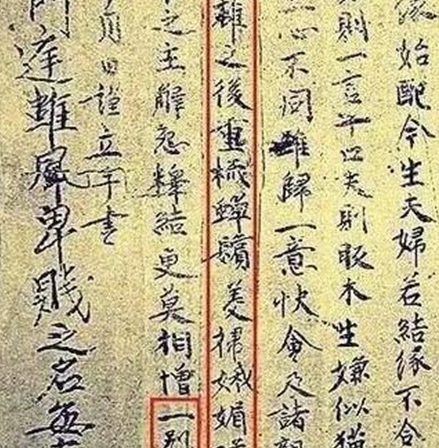 緣始配今生夫婦若結緣不合
則一言口夫則販木生嫌似猫
心不同難歸一意快會及諸親
離之後重梳蟬鬢美掃娥媚
之主解怨釋結更莫相憎一別
月日謹立手書
門雖風卑賤之名